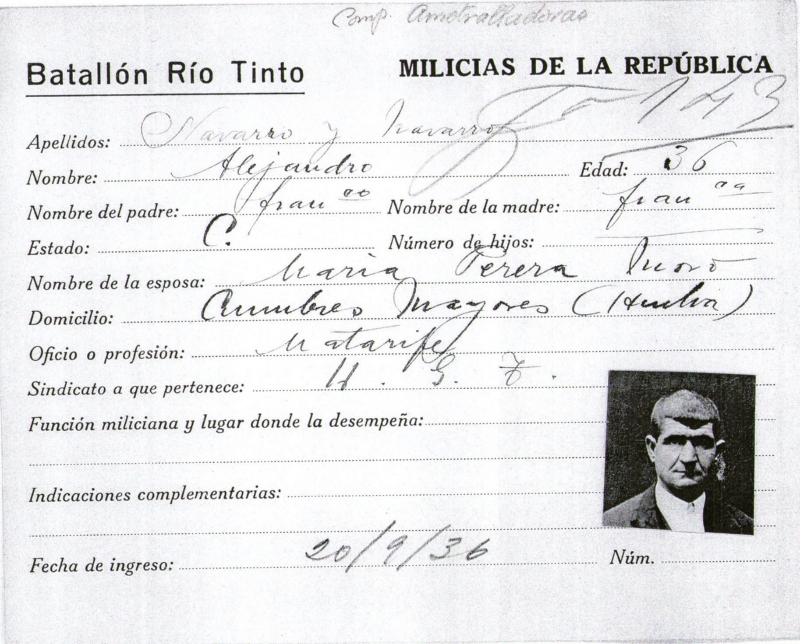 Comp. Ametralladoras
Batallón Río Tinto MILICIAS DE LA REPÚBLICA
Apellidos: Navarro y Navarro 143
Nombre: Alejandro Edad: 36
Nombre del padre: fran co Nombre de la madre: fran ca
Estado: C. Número de hijos: —
Nombre de la esposa: Maria Perera
Domicilio: Cumbres Mayores (Huelva)
Oficio o profesión: Matarife
Sindicato a que pertenece: U. G. T.
Función miliciana y lugar donde la desempeña:
Indicaciones complementarias:
Fecha de ingreso: 20/9/36 Núm.